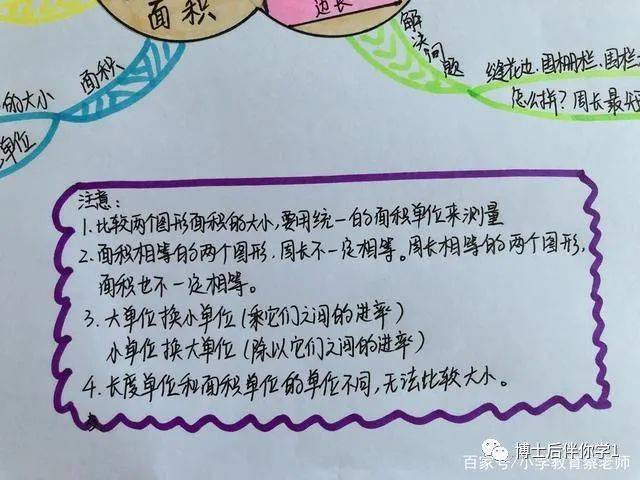 面积
边长
解决问题
面积
的大小
单位
缝花边、围栅栏、围栏
怎么拼？周长最短
注意：
1.比较两个图形面积的大小,要用统一的面积单位来测量
2.面积相等的两个图形，周长不一定相等。周长相等的两个图形，
面积也不一定相等。
3.大单位换小单位（乘它们之间的进率）
小单位换大单位（除以它们之间的进率）
4.长度单位和面积单位的单位不同，无法比较大小。
博士后伴你学1
百家号/小学教育蔡老师